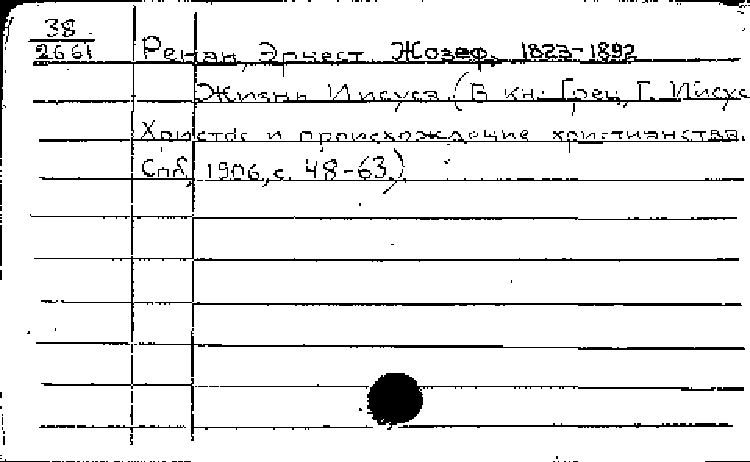 38
2661
Ренан, Эрнест Жозеф. 1823-1892
Жизнь Иисуса. (В кн: Грец, Г. Иисус
Христос и происхождение христианства.
Спб, 1906, с. 48-63.)